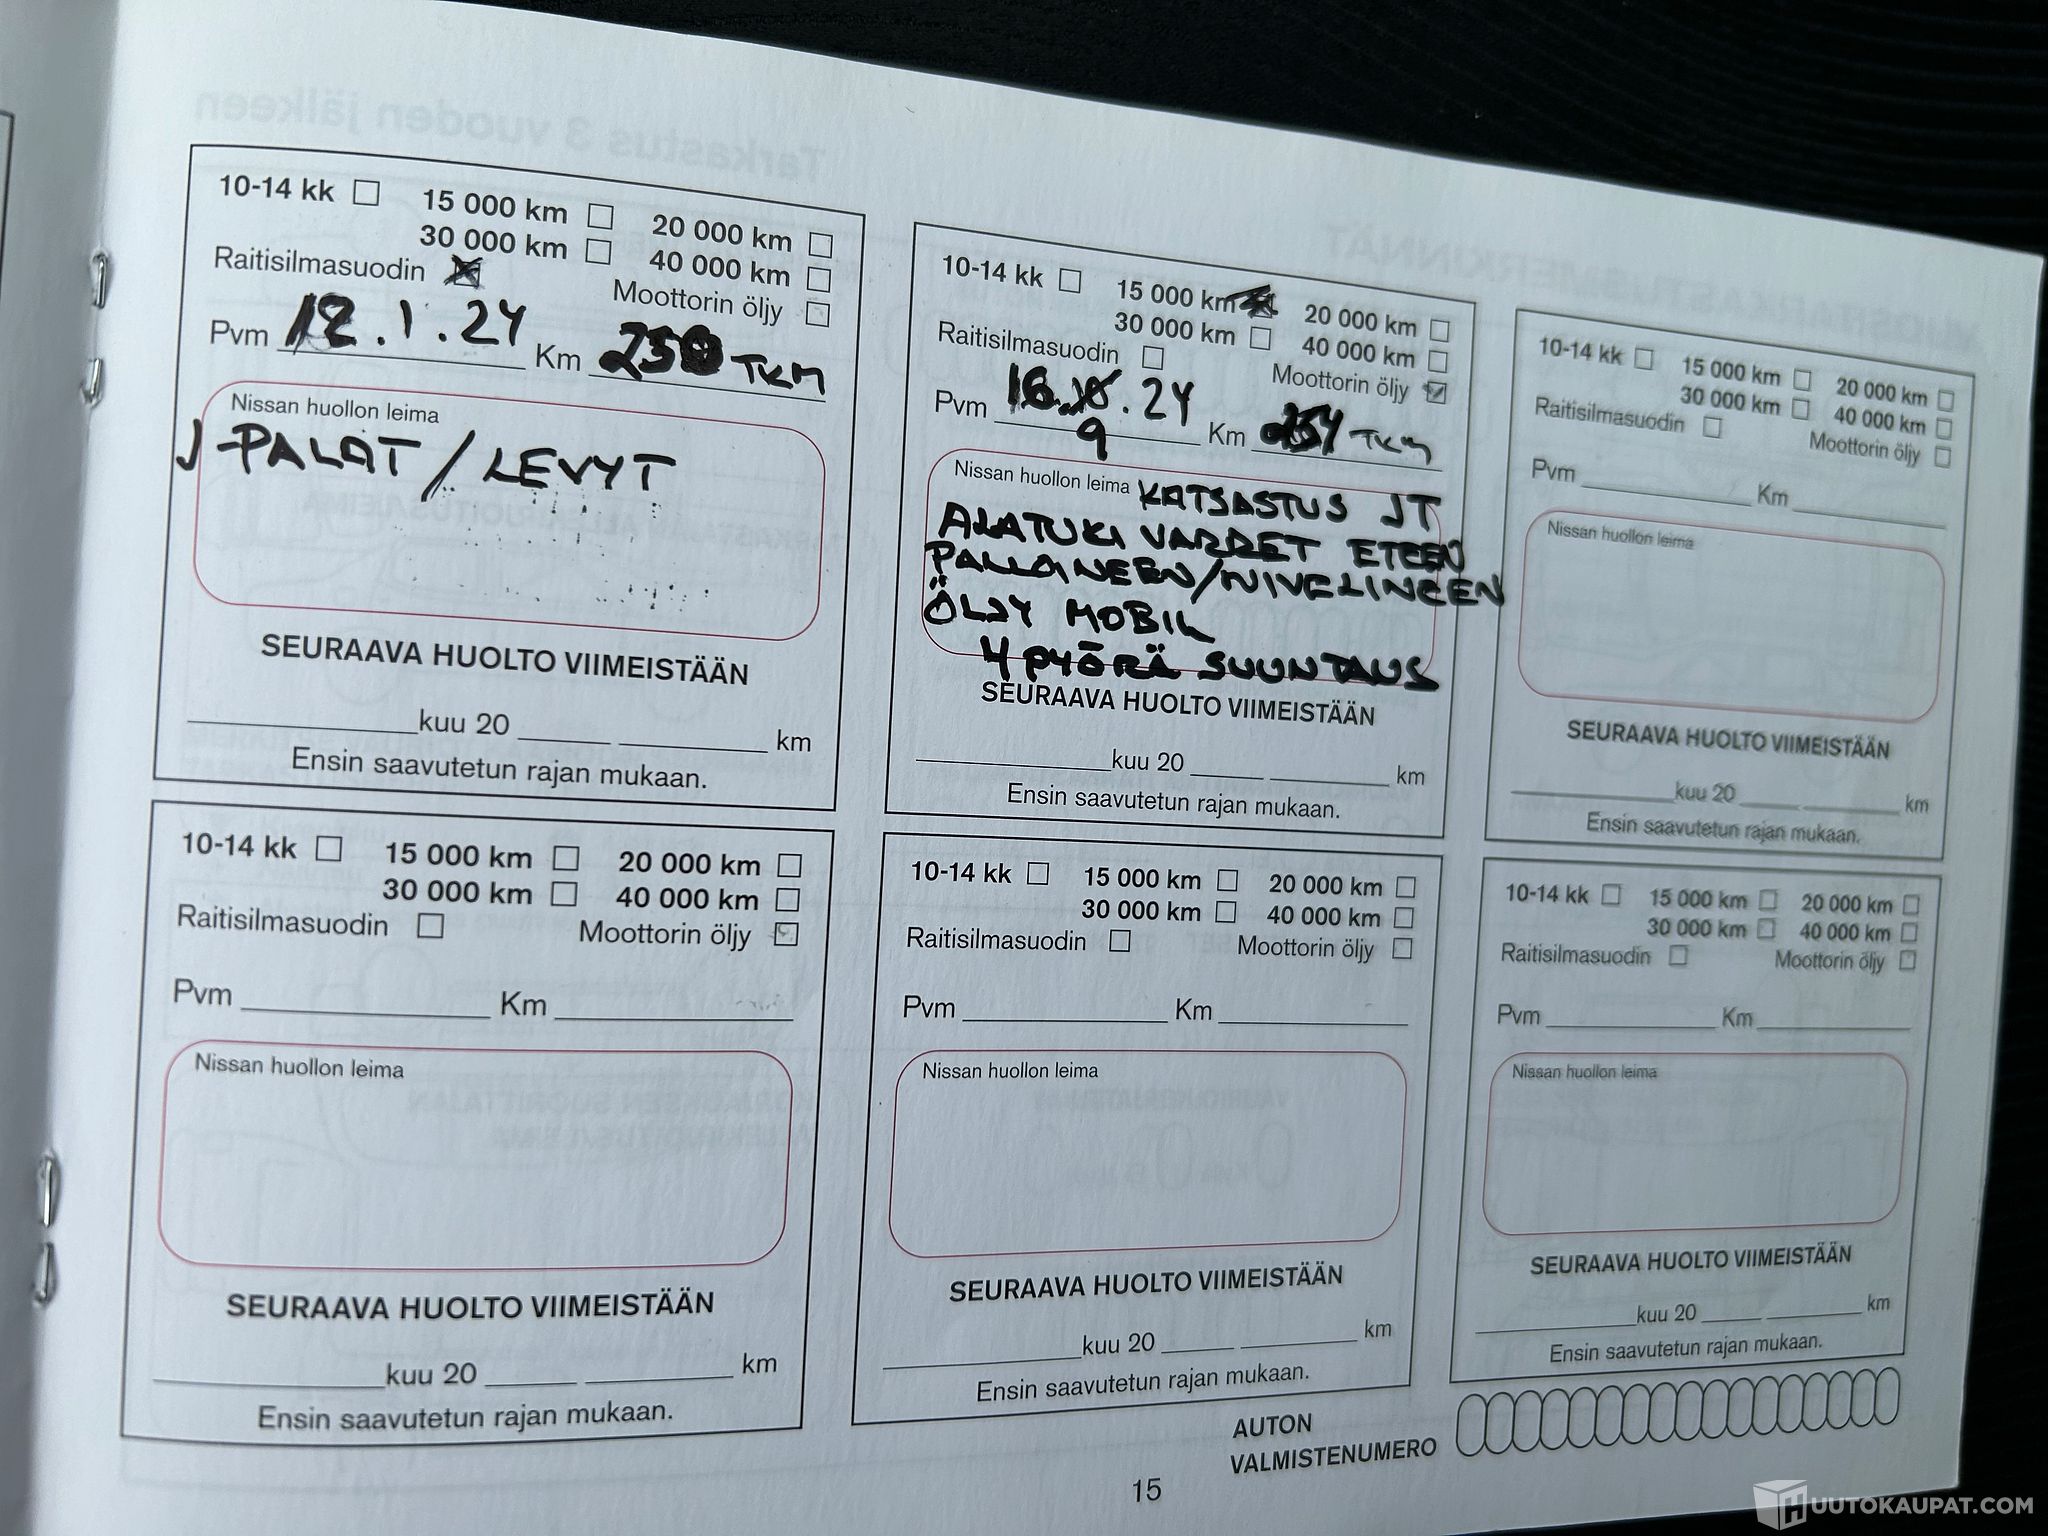 10-14 kk 15 000 km 20 000 km
30 000 km 40 000 km
Raitisilmasuodin Moottorin öljy
Pvm 12.1.24 Km 250 TKM
Nissan huollon leima
J-PALAT/LEVYT
SEURAAVA HUOLTO VIIMEISTÄÄN
kuu 20 km
Ensin saavutetun rajan mukaan.
10-14 kk 15 000 km 20 000 km
30 000 km 40 000 km
Raitisilmasuodin Moottorin öljy
Pvm 16. .24 Km 254 TKM
9
Nissan huollon leima KATSASTUS JT
ALATUKI VARRET ETEEN
PALLOINEEN/NIVELINEEN
ÖLJY MOBIL
4 PYÖRÄ SUUNTAUS
SEURAAVA HUOLTO VIIMEISTÄÄN
kuu 20 km
Ensin saavutetun rajan mukaan.
10-14 kk 15 000 km 20 000 km
30 000 km 40 000 km
Raitisilmasuodin Moottorin öljy
Pvm Km
Nissan huollon leima
SEURAAVA HUOLTO VIIMEISTÄÄN
kuu 20 km
Ensin saavutetun rajan mukaan.
10-14 kk 15 000 km 20 000 km
30 000 km 40 000 km
Raitisilmasuodin Moottorin öljy
Pvm Km
Nissan huollon leima
SEURAAVA HUOLTO VIIMEISTÄÄN
kuu 20 km
Ensin saavutetun rajan mukaan.
10-14 kk 15 000 km 20 000 km
30 000 km 40 000 km
Raitisilmasuodin Moottorin öljy
Pvm Km
Nissan huollon leima
SEURAAVA HUOLTO VIIMEISTÄÄN
kuu 20 km
Ensin saavutetun rajan mukaan.
10-14 kk 15 000 km 20 000 km
30 000 km 40 000 km
Raitisilmasuodin Moottorin öljy
Pvm Km
Nissan huollon leima
SEURAAVA HUOLTO VIIMEISTÄÄN
kuu 20 km
Ensin saavutetun rajan mukaan.
AUTON
VALMISTENUMERO
15
HUUTOKAUPAT.COM